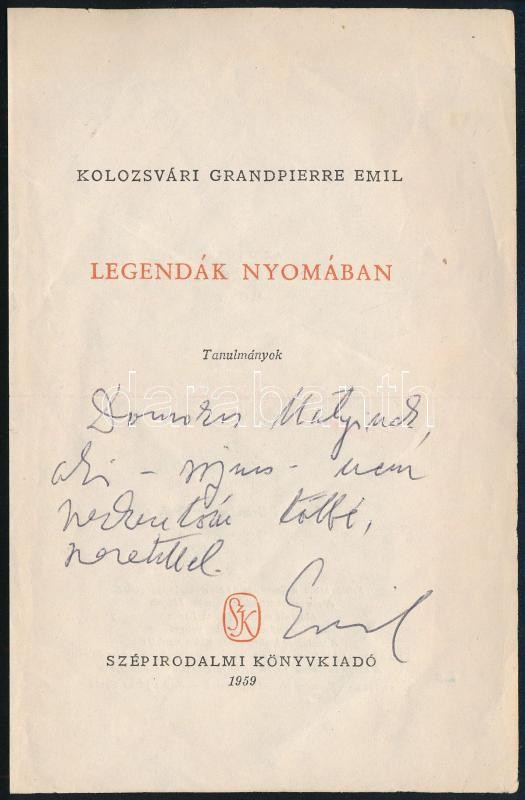 KOLOZSVÁRI GRANDPIERRE EMIL
LEGENDÁK NYOMÁBAN
Tanulmányok
darabanth
Domokos Matyinak,
aki – sajnos – nem
szerkesztőm többé,
szeretettel.
Emil
SzK
SZÉPIRODALMI KÖNYVKIADÓ
1959